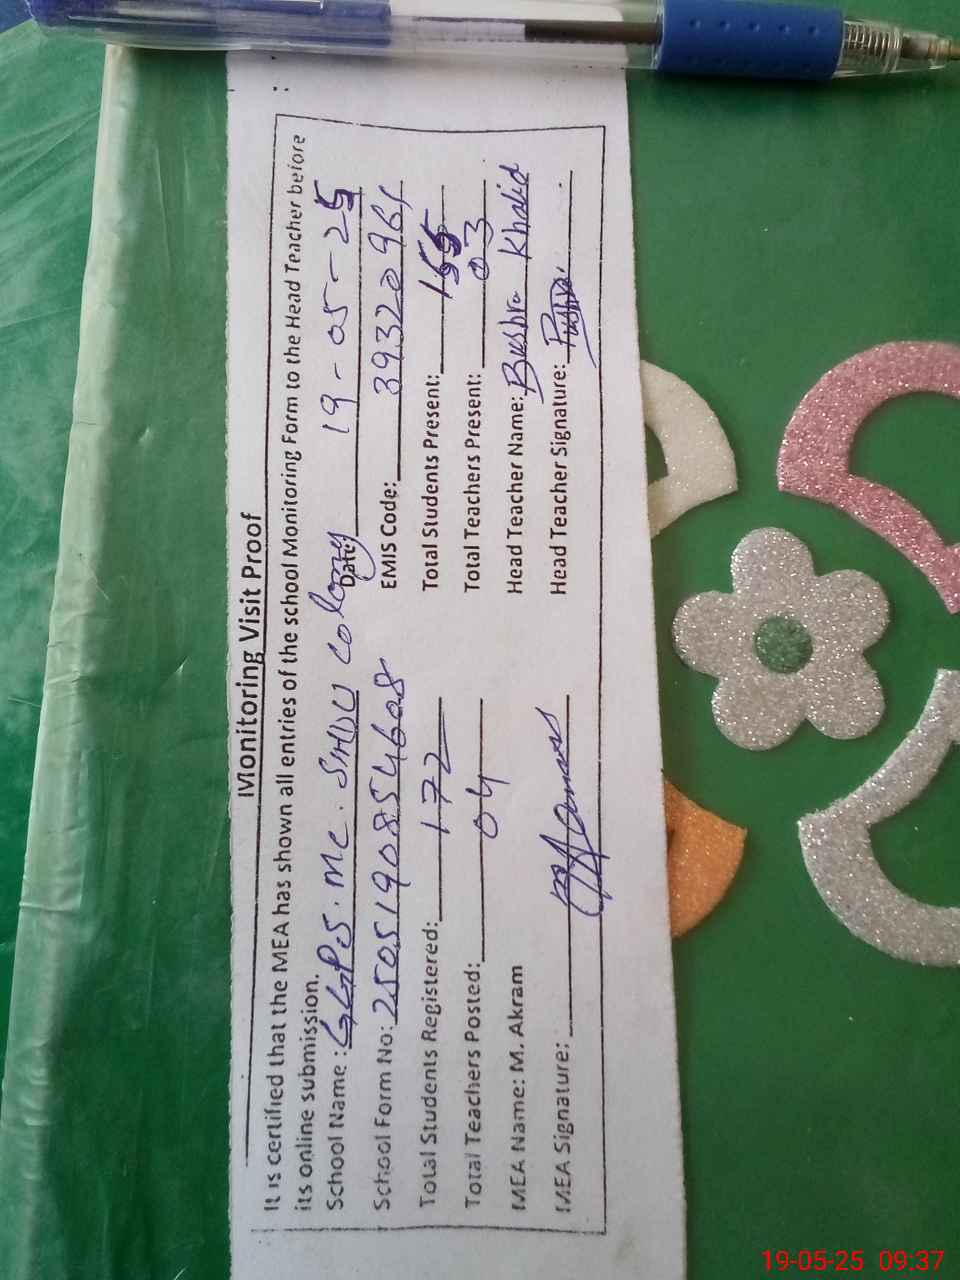 Monitoring Visit Proof
It is certified that the MEA has shown all entries of the school Monitoring Form to the Head Teacher before
its online submission.
School Name: GGPS. Mc. SHDU Colony Date: 19-05-25
School Form No: 2505190854608 EMIS Code: 39320961
Total Students Registered: 172 Total Students Present: 155
Total Teachers Posted: 04 Total Teachers Present: 03
MEA Name: M. Akram Head Teacher Name: Bushra Khalid
MEA Signature: Head Teacher Signature: Bushra
19-05-25 09:37